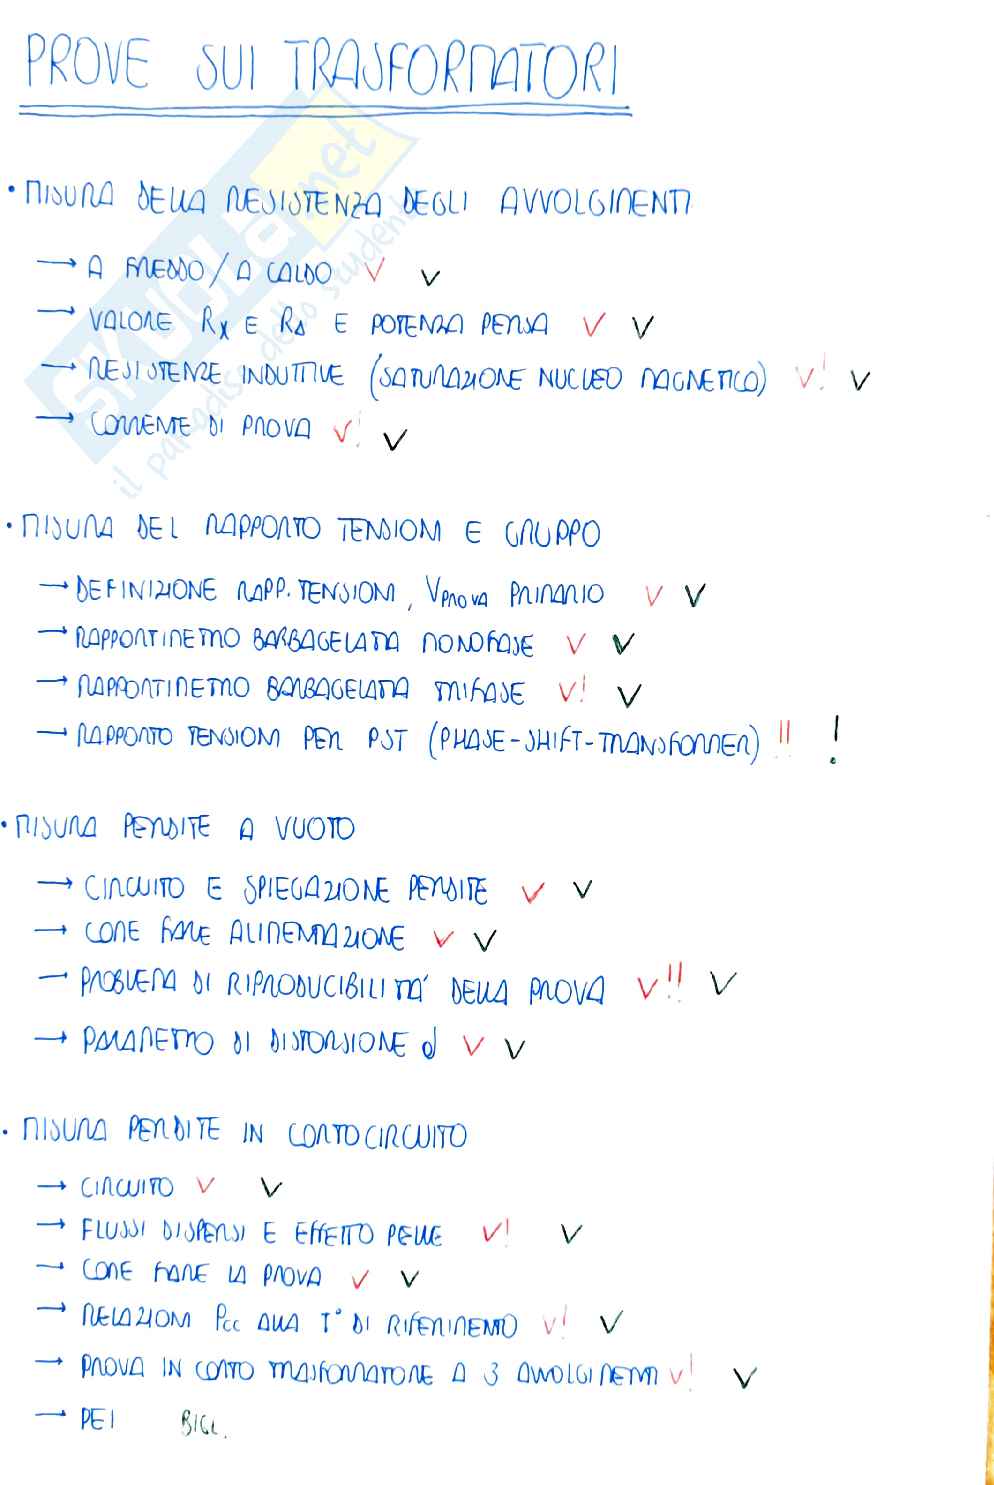 PROVE SUI TRASFORMATORI
• MISURA DELLA RESISTENZA DEGLI AVVOLGIMENTI
→ A FREDDO / A CALDO V V
→ VALORE Rx E RΔ E POTENZA PERSA V V
→ RESISTENZE INDUTTIVE (SATURAZIONE NUCLEO MAGNETICO) V! V
→ CORRENTE DI PROVA V! V
• MISURA DEL RAPPORTO TENSIONI E GRUPPO
→ DEFINIZIONE RAPP. TENSIONI, VPROVA PRIMARIO V V
→ RAPPORTIMETRO BARBAGELATA MONOFASE V V
→ RAPPORTIMETRO BARBAGELATA TRIFASE V! V
→ RAPPORTO TENSIONI PER PST (PHASE-SHIFT-TRANSFORMER) !! !
• MISURA PERDITE A VUOTO
→ CIRCUITO E SPIEGAZIONE PERDITE V V
→ COME FARE ALIMENTAZIONE V V
→ PROBLEMA DI RIPRODUCIBILITA' DELLA PROVA V!! V
→ PARAMETRO DI DISTORSIONE d V V
• MISURA PERDITE IN CORTOCIRCUITO
→ CIRCUITO V V
→ FLUSSI DISPERSI E EFFETTO PELLE V! V
→ COME FARE LA PROVA V V
→ RELAZIONI Pcc ALLA T° DI RIFERIMENTO V! V
→ PROVA IN CORTO TRASFORMATORE A 3 AVVOLGIMENTI V! V
→ PEI BIGL.
SKUOLA.net
il paradiso dello studente